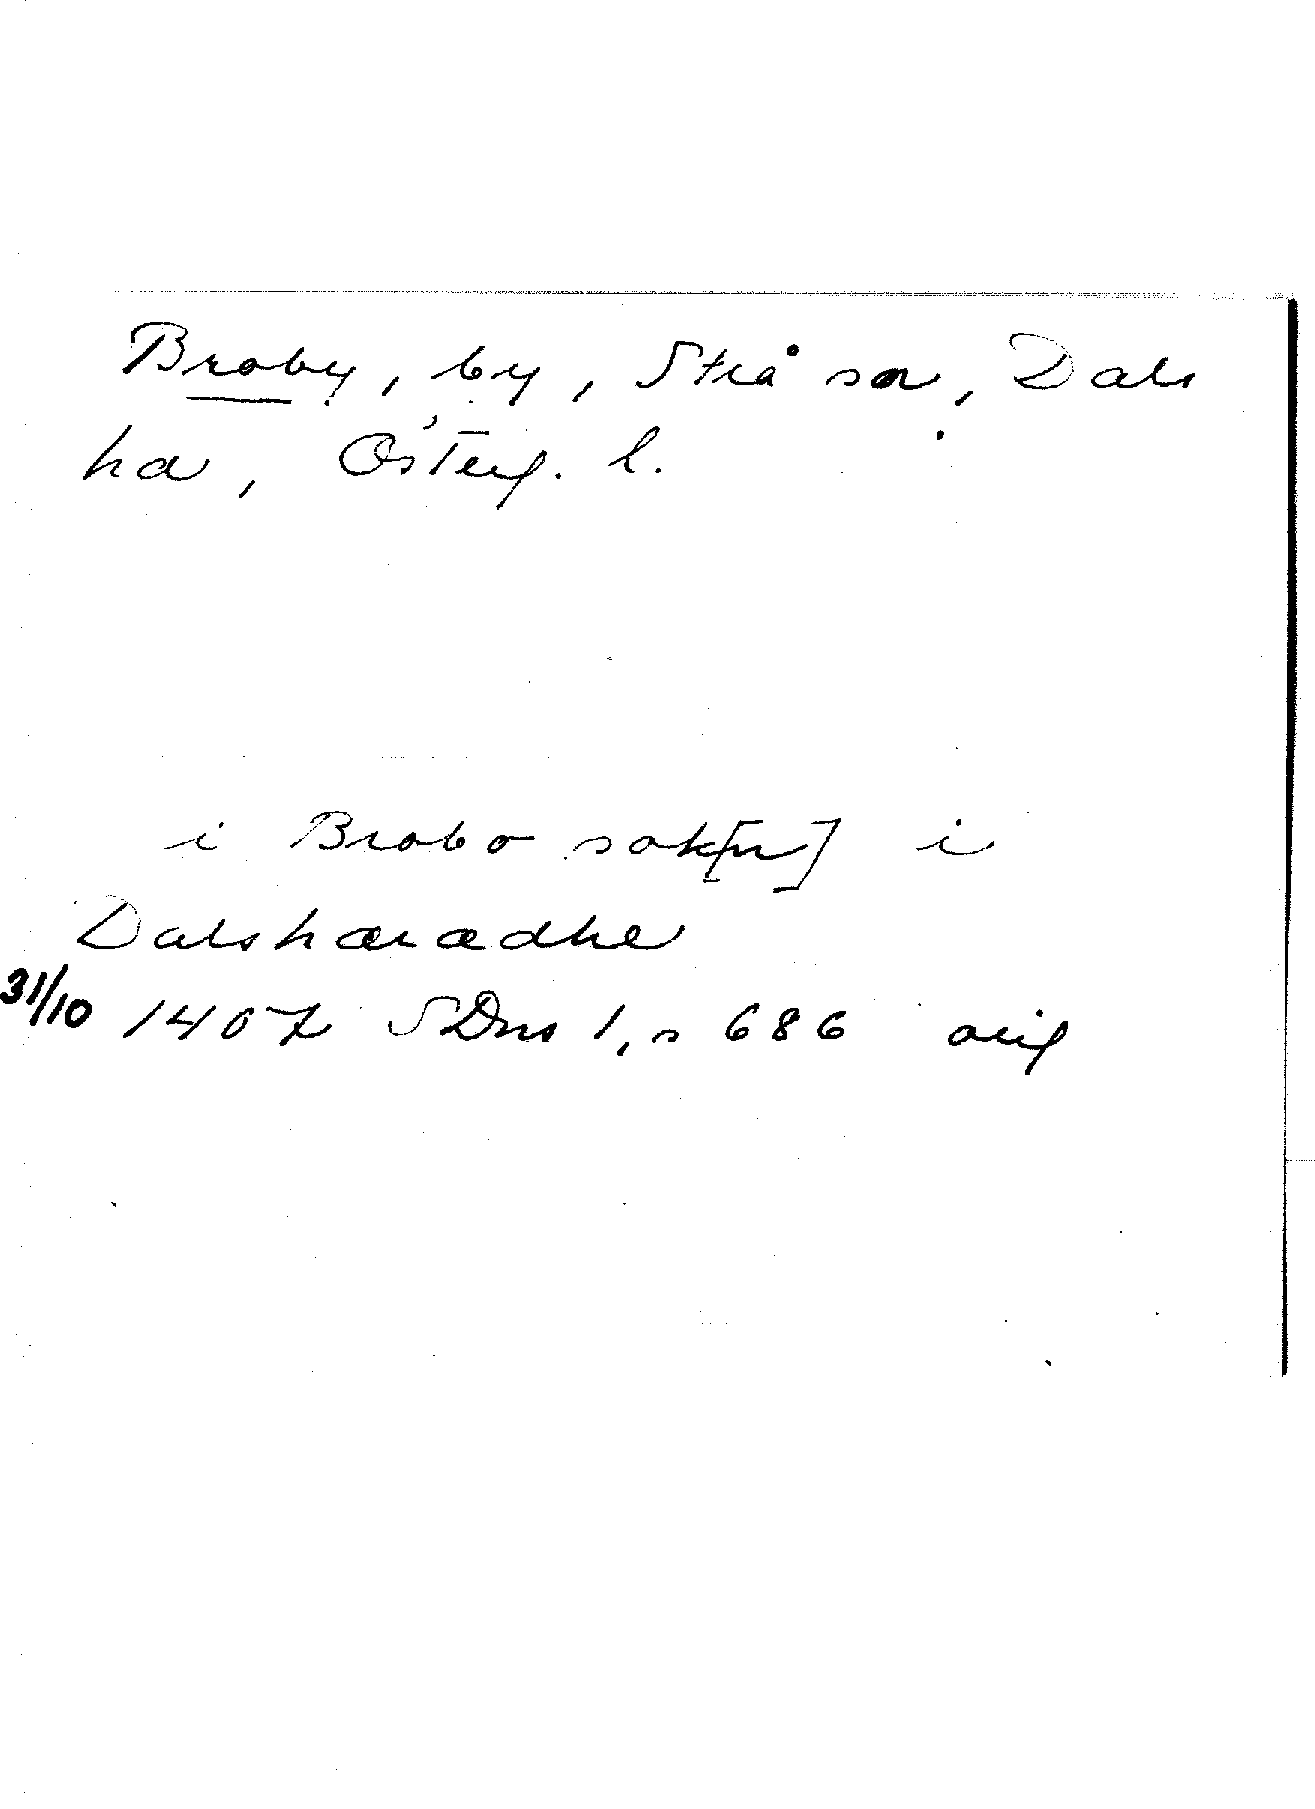 Broby, by, Strå sn, Dals
hd, Österg. l.
i Brobo sok[n] i
Dalshæradhe
31/10 1407 SDns 1, s 686 orig